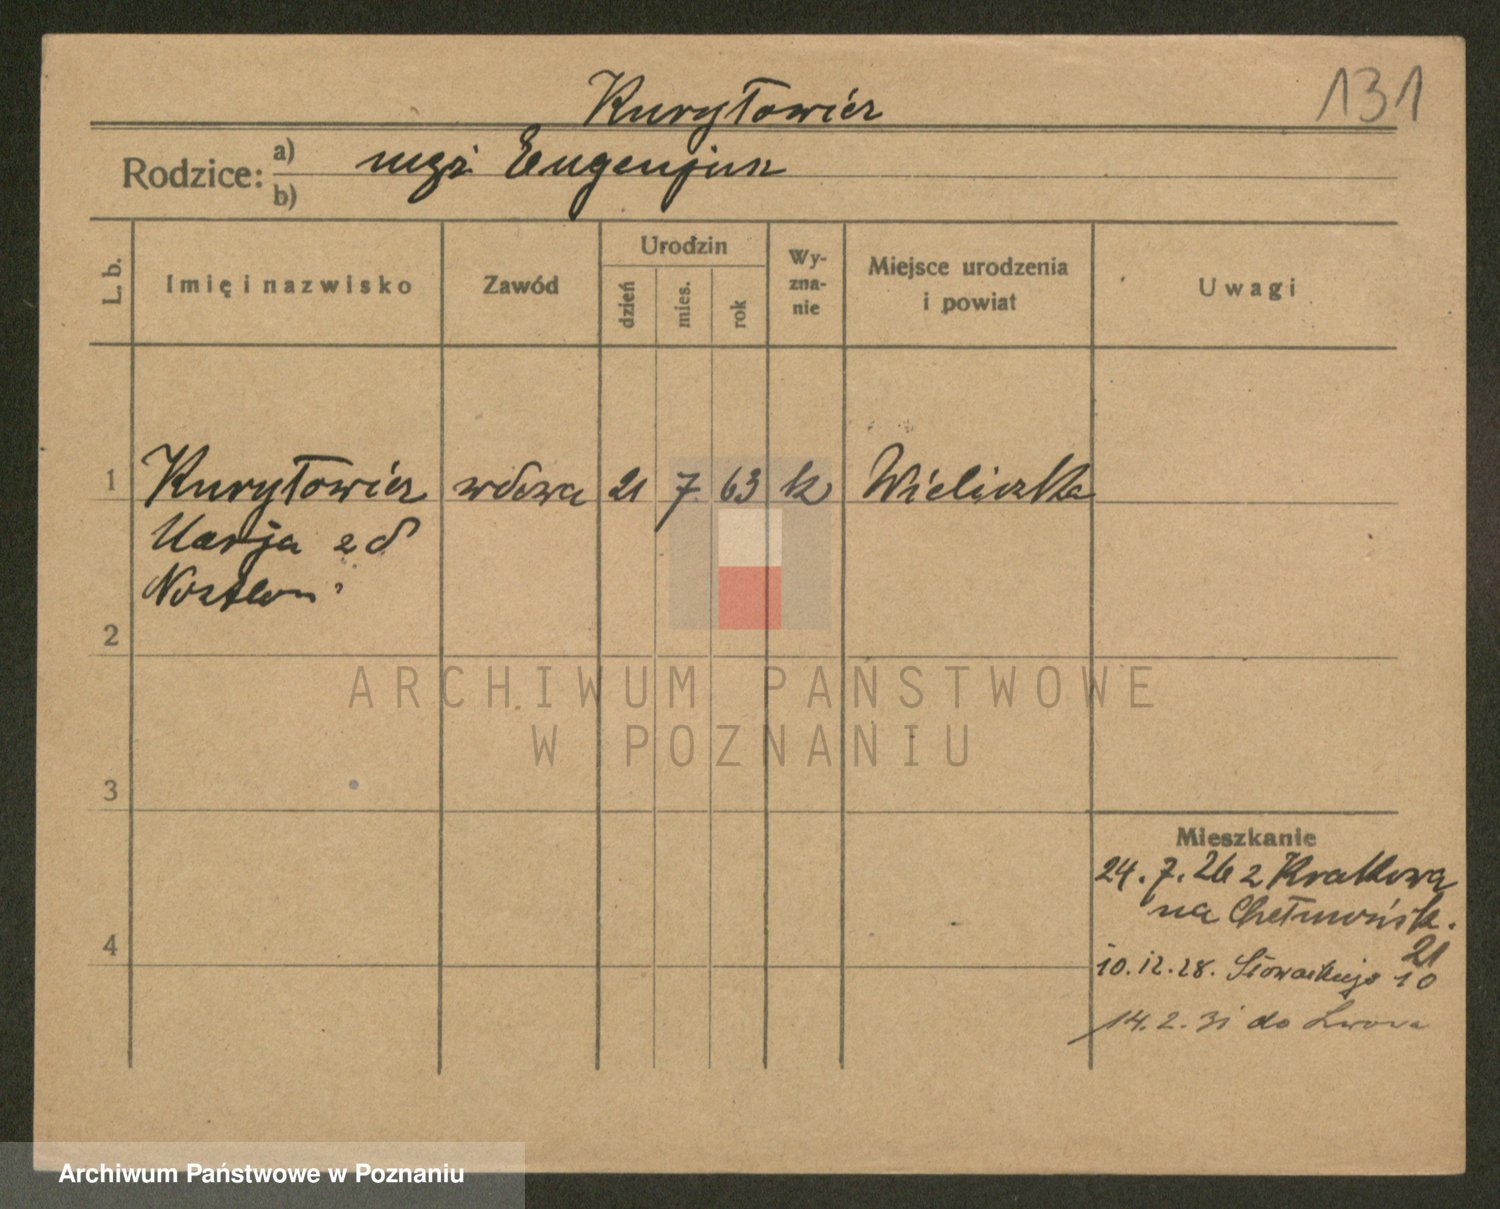 Kuryłowicz
131
Rodzice: a) mąż Eugenjusz
b)
L. b.
Imię i nazwisko
Zawód
Urodzin
dzień
mies.
rok
Wy-
zna-
nie
Miejsce urodzenia
i powiat
Uwagi
1 Kuryłowicz wdowa 21 7 63 k Wieliczka
Marja z d
2
3
4
Mieszkanie
24. 7. 26 z Krakowa
na Chełmońsk.
21
10.12.28. Słowackiego 10
14. 2. 31 do Lwowa
ARCHIWUM PAŃSTWOWE
W POZNANIU
Archiwum Państwowe w Poznaniu